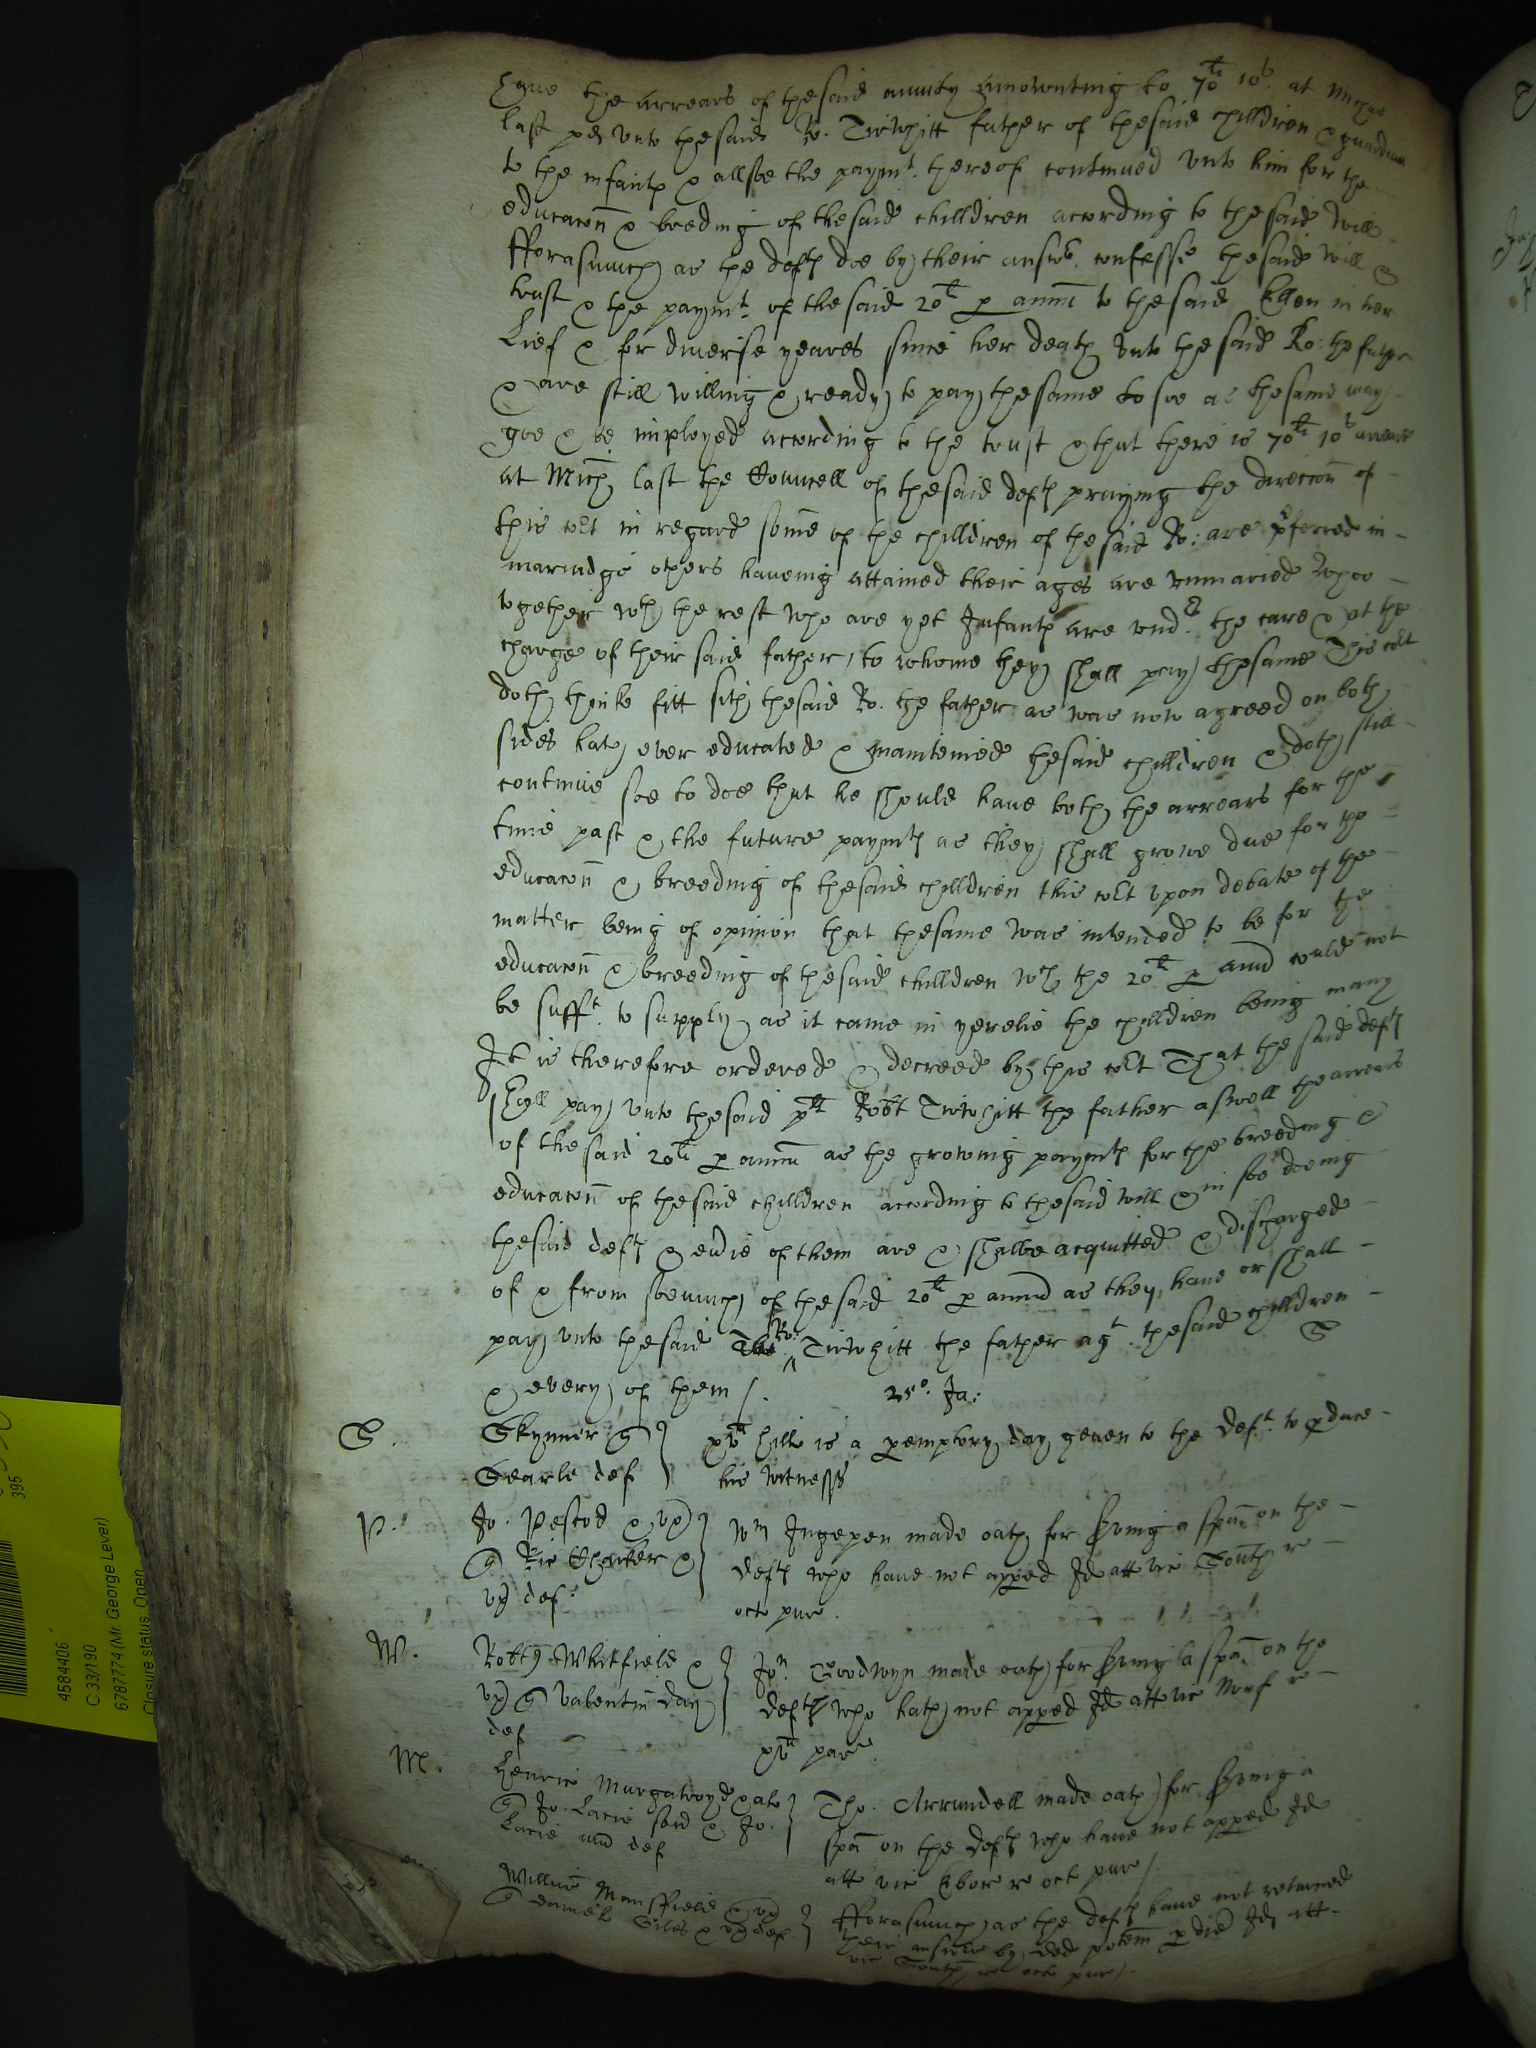 haue the arrears of thesaid annuity amounting to 70li 10s at Michas
last pd vnto thesaid Ro. Tirwhitt father of thesaid children & guardian
to the infantes & allsoe the paymt. thereof continued vnto him for the
educacon & breeding of thesaid children according to thesaid will
fforasmuch as the defts doe by their answer confesse thesaid will &
trust & the paymt. of thesaid 20li p annu to thesaid Ellen in her
Lief & for diuerse yeares since her death vnto thesaid Ro: the father
& are still willing & ready to pay thesame to soe as thesame may
goe & be imployed according to the trust & that there is 70li 10s arreare
at Mich. last the Councell of thesaid defts praying the direccon of
this cort in regard some of the children of thesaid Ro: are pferred in
mariadge others haueing attained their ages are vnmaried whoo
together wth the rest who are yet Infants are vnder the care & at the
charge of their said father, to whome they shall pay thesame This cort
doth thinke fitt sith thesaid Ro. the father as was now agreed on both
sides hath ever educated & mainteined thesaid children & doth still
continue soe to doe that he should haue both the arrears for the
time past & the future paymts as they shall growe due for the
educacon & breeding of thesaid children this cort vpon debate of the
matter being of opinion that thesame was intended to be for the
educacon & breeding of thesaid children wch the 20li p annu could not
be sufft. to supply as it came in yerelie the children being many
It is therefore ordered & decreed by this cort That the said defts
shall pay vnto thesaid plt Robt Tirwhitt the father aswell the arrears
of thesaid 20li p annu as the growing paymts for the breeding &
educacon of thesaid children according to thesaid will & in soe doeing
thesaid defts & eu'ie of them are & shalbe acquitted & discharged
of & from soemuch of thesaid 20li p annu as they haue or shall
pay vnto thesaid Ro: Tirwhitt the father agt. thesaid children
& every of them /. S
25o. Ja:
S. Skynner q } xva hill is a peremptory day geuen to the Deft. to pduce
Searle def } his witnesses
P. Jo. Pescod & vx } Wm Ingepen made oath for serving a spa on the
q Ric & } defts who haue not apped Id att vic South re
vx def. octo pur.
W. Robt Whitfield & } Jon. Goodwyn made oath for serving a spa. on the
vx q Valentin Day } defts who hath not apped Id att vic Norf re
def xva pur.
M. Henric Murgatroyd & at } Tho. Arrundell made oath for serving a
q Jo. Lacie sen & Jo. } spa on the defts who haue not apped Id
Lacie iun def att vic Ebor re oct pur /.
Willm Mansffield & vx } fforasmuch as the defts haue not returned
q Daniel Giles & vx def } their answere by ded potem p die Id att
vic South re octo pur /.
4584406
C 33/190
6787774 (Mr. George Lever)
Closure status: Open
395